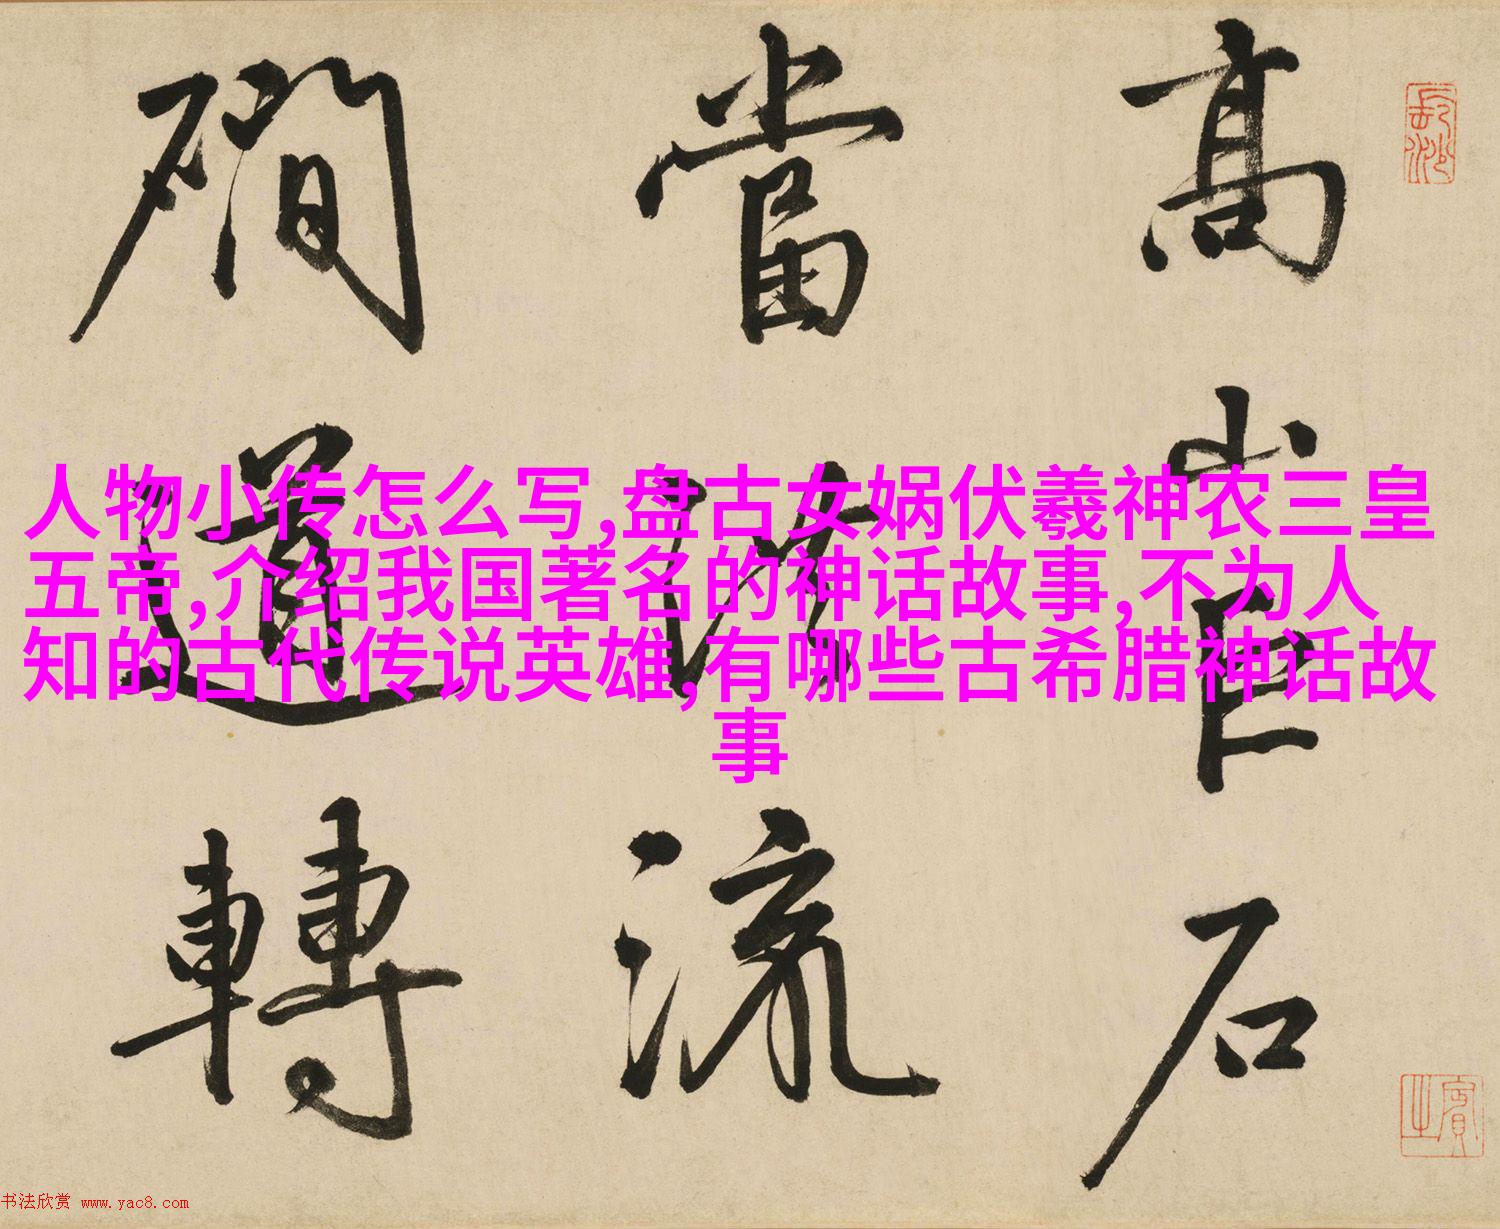 高当磵
山沿道
巨流轉
石
人物小传怎么写,盘古女娲伏羲神农三皇
五帝,介绍我国著名的神话故事,不为人
知的古代传说英雄,有哪些古希腊神话故
事
书法欣赏 www.yac8.com